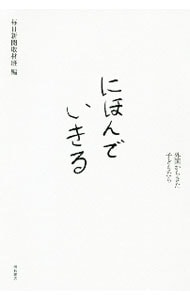 にほんで
いきる
外国からきた
子どもたち
毎日新聞取材班 編
明石書店